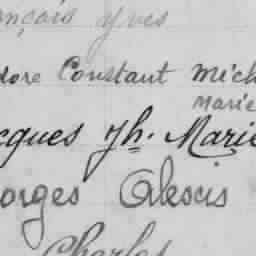 ançois Yves
dore Constant Mich
Marie
cques Jh. Marie
orges Alexis
Charles